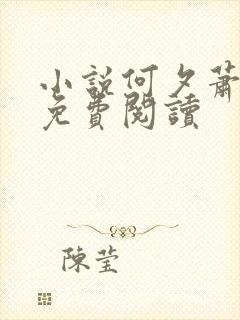 小說何夕蕭
免費閱讀
陳瑩